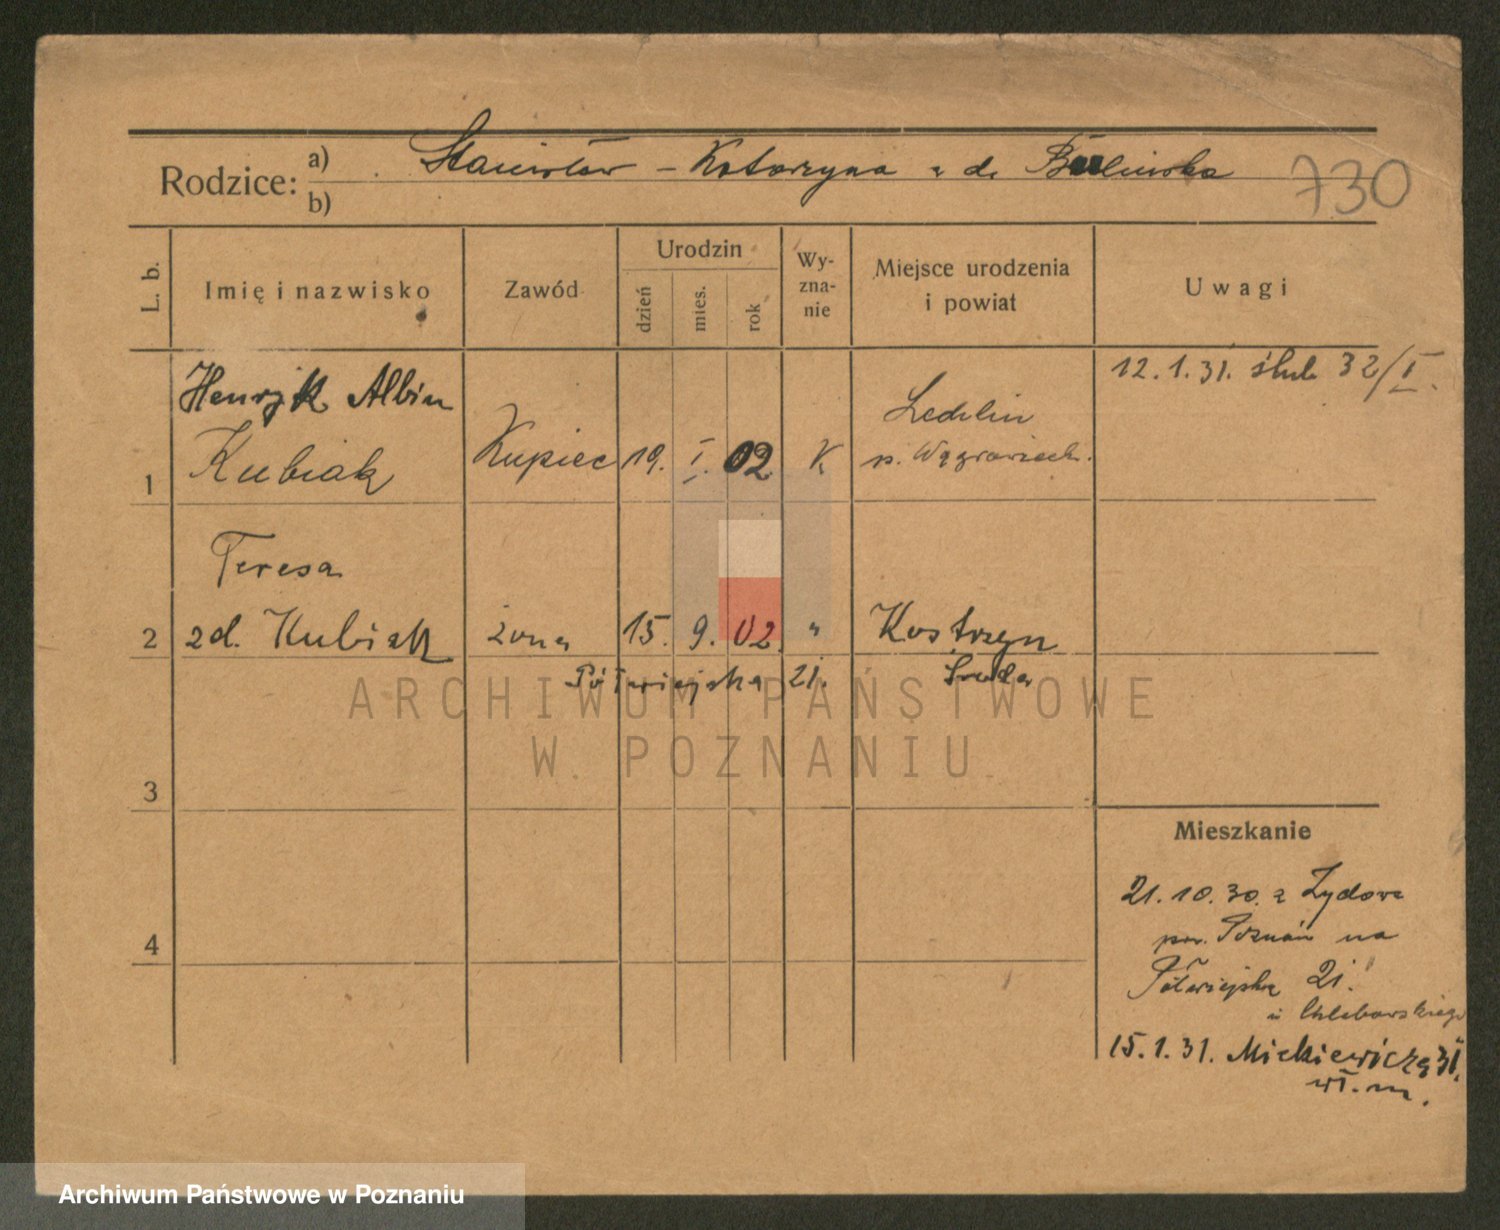 Rodzice: a) Stanisław – Katarzyna z d.
b)
730
L. b.
Imię i nazwisko
Zawód
Urodzin
dzień
mies.
rok
Wy-
zna-
nie
Miejsce urodzenia
i powiat
Uwagi
12.1.31. ślub 32/I.
Henryk Albin
1 Kubiak Kupiec 19. I. 02 K
p. Wągrowiec
Teresa
2 zd. Kubiak żona 15. 9. 02 " Kostrzyn
Półwiejska 21. Środa
ARCHIWUM PAŃSTWOWE
W POZNANIU
3
Mieszkanie
21.10.30. z Żydowa
pow. Poznań na
4
Półwiejską 21.
u Chlebowskiego
15.1.31. Mickiewicza 31.
wł. m.
Archiwum Państwowe w Poznaniu